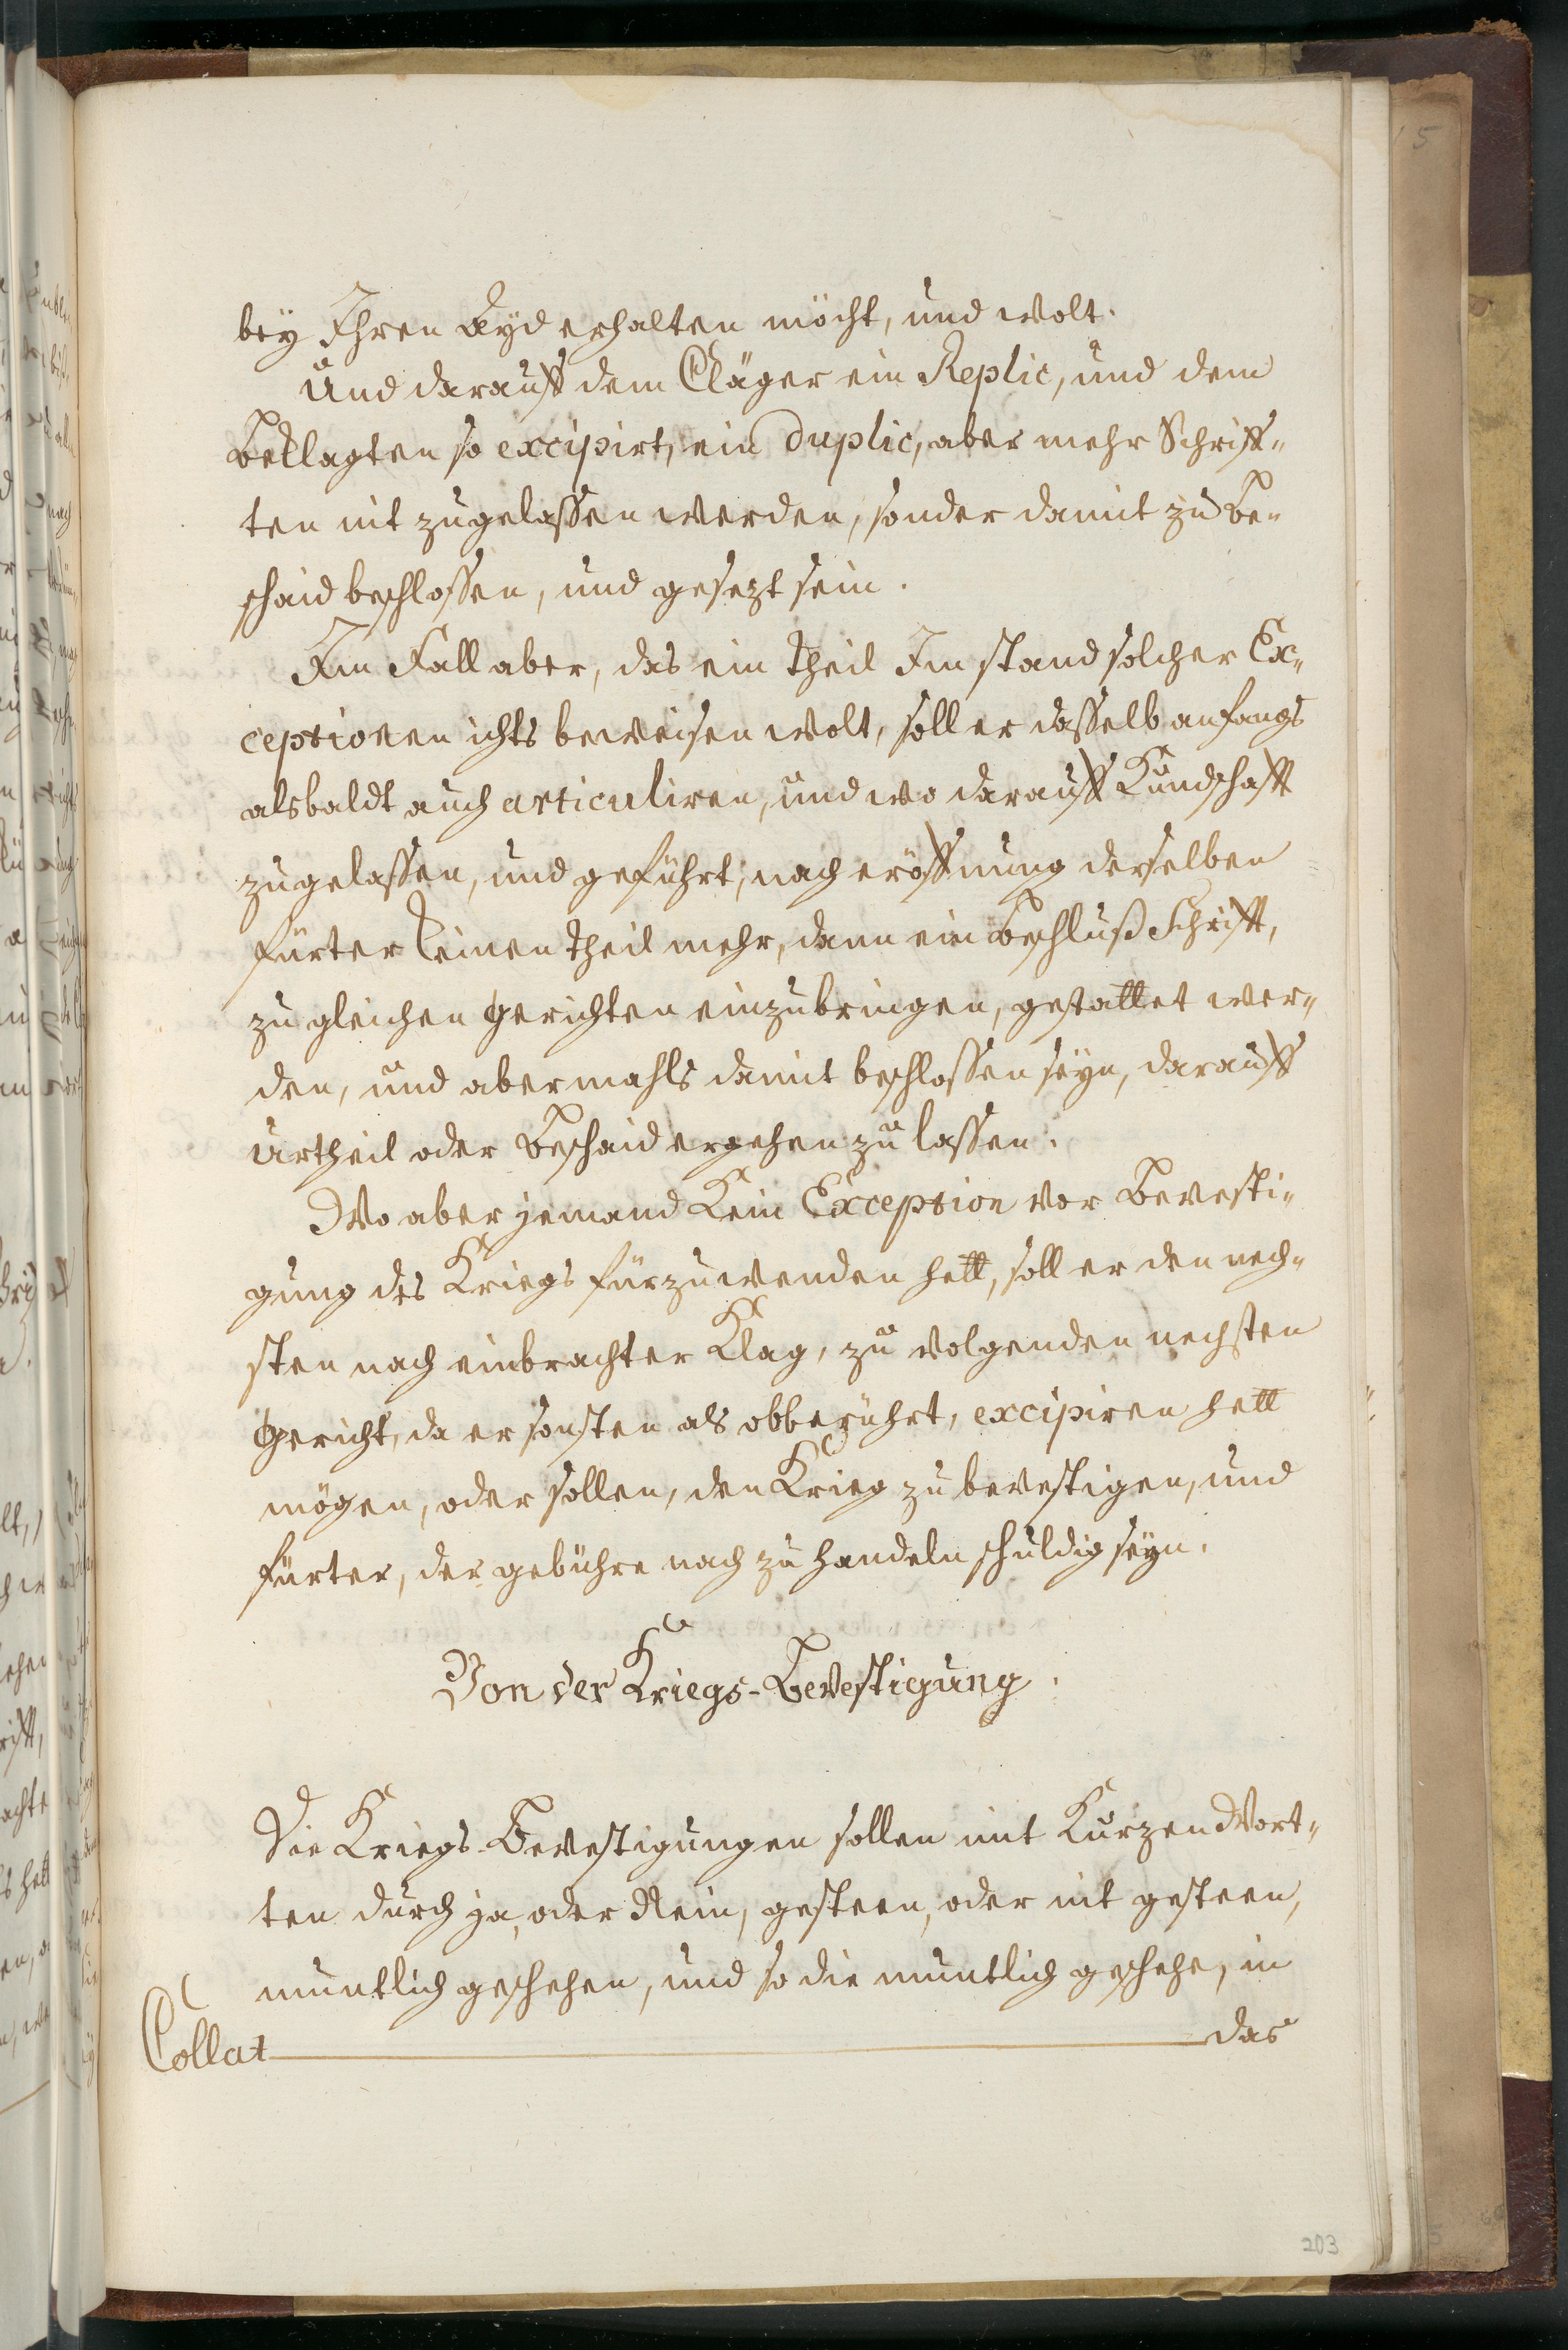 bey Ihren Ayd erhalten möcht, und wolt.
Und darauff dem Cläger ein Replic, und dem
Beklagten so excipirt, ein duplic, aber mehr Schriff„
ten nit zugelassen werden, sonder damit zu Be„
schaid beschlossen, und gesezt sein.
Im Fall aber, das ein theil Im stand solcher Ex„
ceptionen ichts beweisen wolt, soll er dasselb anfangs
alsbaldt auch articuliren, und wo darauff Kundschafft
zugelassen, und geführt, nach eröffnung derselben
fürter keinen theil mehr, dann ein Beschluß Schrifft,
zu gleichen Gerichten einzubringen, gestattet wer„
den, und abermahls damit beschlossen seyn, darauff
Urtheil oder Beschaid ergehen zu lassen.
Wo aber jemand Kein Exception vor Bevesti„
gung des Kriegs fürzuwenden hett, soll er den nech„
sten nach einbrachter Klag, zu volgenden nechsten
Gericht, da er sonsten als obberührt, excipiren hett
mögen, oder sollen, den Krieg zu bevestigen, und
fürter, der gebühre nach zu handeln schuldig seyn.
Von der Kriegs-Bevestigung.
Die Kriegs-Bevestigungen sollen mit Kurzen Wort„
ten durch ja, oder Nein, gesteen, oder nit gesteen,
muntlich geschehen, und so die muntlich geschehe, in
Collat das
203